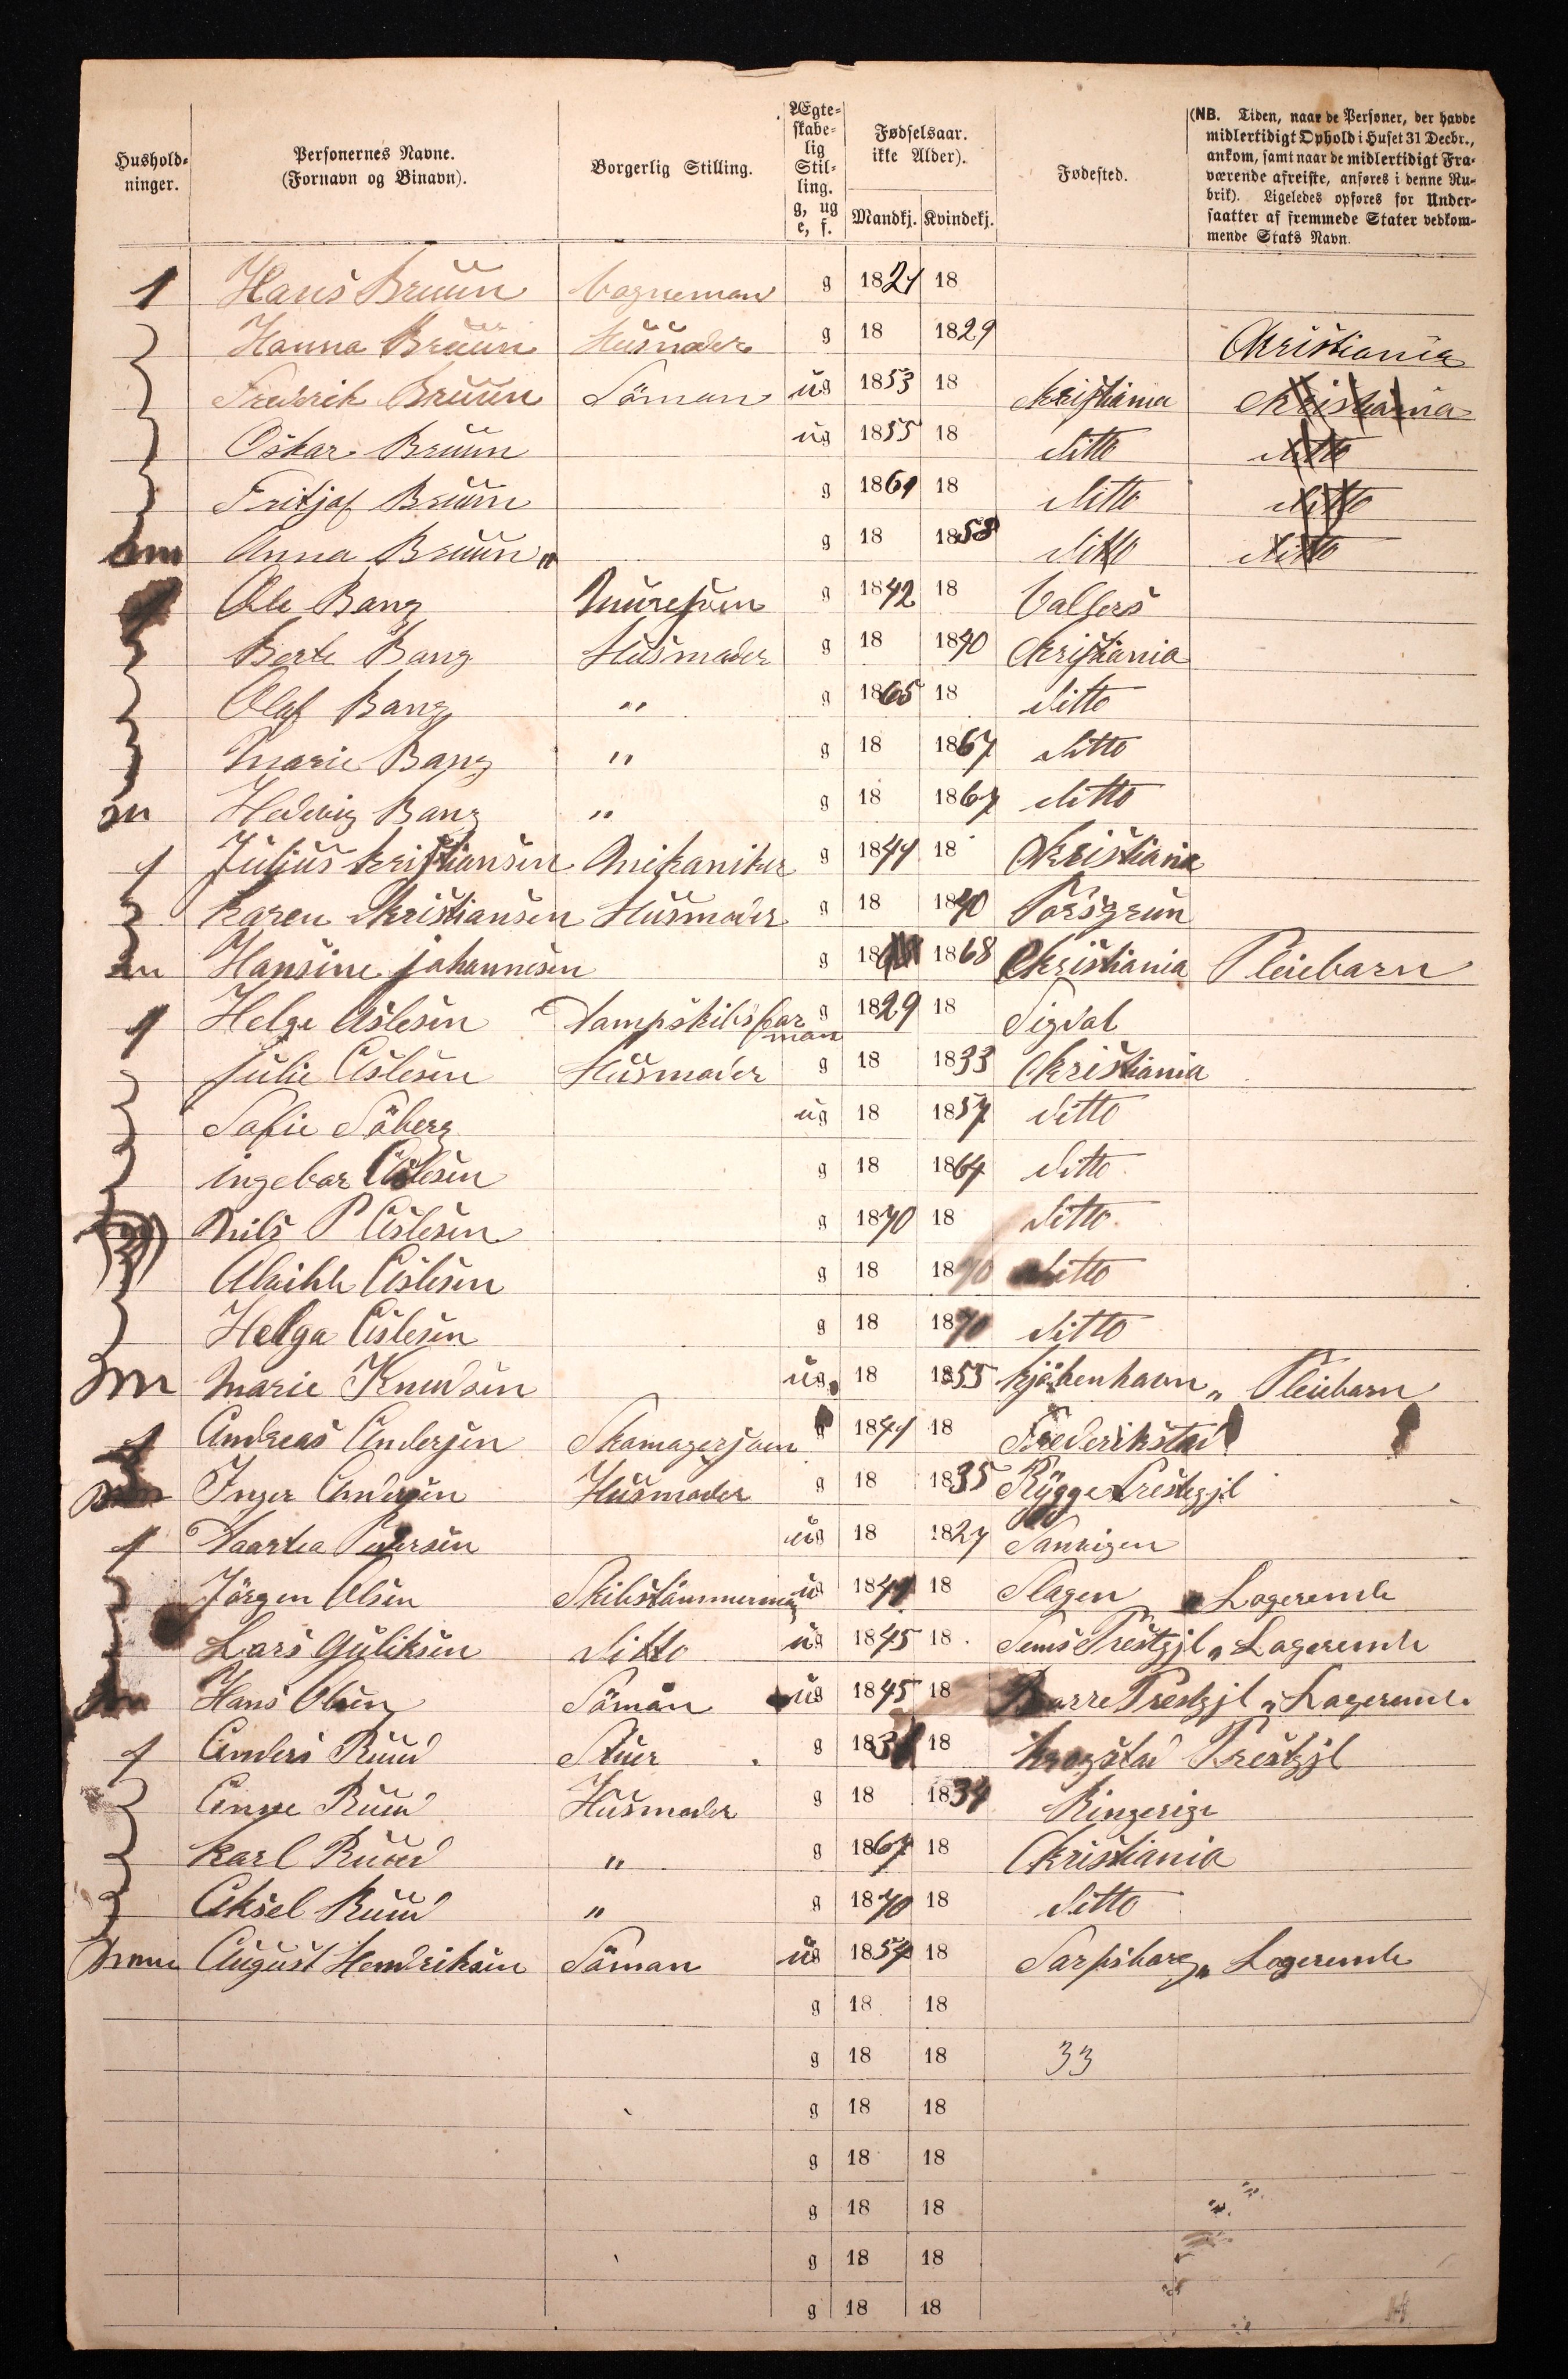 Hushold-
ninger.
Personernes Navne.
(Fornavn og Binavn).
Borgerlig Stilling.
Ægte-
skabe-
lig
Stil-
ling.
g, ug
e, f.
Fødselsaar.
ikke Alder).
Mandkj. Kvindekj.
Fødested.
(NB. Tiden, naar de Personer, der havde
midlertidigt Ophold i Huset 31 Decbr.,
ankom, samt naar de midlertidigt Fra-
værende afreiste, anføres i denne Ru-
brik). Ligeledes opføres for Under-
saatter af fremmede Stater vedkom-
mende Stats Navn.
1 Hans Bruun Vogneman g 1821 18
Hanna Bruun Husmoder g 18 1829 Christiania
Frederik Bruun Söman ug 1853 18 Christiania Christiania
Oskar Bruun ug 1855 18 ditto ditto
Fritjof Bruun g 1861 18 ditto ditto
Anna Bruun " g 18 1858 ditto ditto
Ole Bang Muresven g 1842 18 Valders
Berte Bang Husmoder g 18 1840 Christiania
Olaf Bang " g 1865 18 ditto
Marie Bang " g 18 1867 ditto
Hedevig Bang " g 18 1867 ditto
1 Julius Kristiansen Mekaniker g 1841 18 Christiania
Karen Kristiansen Husmoder g 18 1840 Porsgrun
Hansine Johannesen g 18 1868 Christiania Pleiebarn
1 Helge Aslesen Dampskibsfar g 1829 18 Sigdal
man
Julie Aslesen Husmoder g 18 1833 Christiania
Sofie Söberg ug 18 1857 ditto
ingebor Aslesen g 18 1864 ditto
Nils P Aslesen g 1870 18 ditto
Aslesen g 18 1870 ditto
Helga Aslesen g 18 1870 ditto
Marie Knudsen ug 18 1855 Kjöbenhavn " Pleiebarn
1 Andreas Andersen Skomagersven g 1841 18 Frederikstad
Inger Andersen Husmoder g 18 1835 Rygge Prestegjl
1 Maartea Pedersen ug 18 1827
Jörgen Olsen Skibstömmerman ug 1841 18 Slagen Logerende
Lars Guliksen ditto ug 1845 18 Sems Prestgjl " Logerende
Hans Olsen Söman ug 1845 18 Borre Prestgjl " Logerende
1 Anders Ruud Stuer g 183 18 Krogstad Prestgjl
Anne Ruud Husmoder g 18 1834 Ringerige
Karl Ruud " g 1867 18 Christiania
Aksel Ruud " g 1870 18 ditto
August Hendriksen Söman ug 1854 18 Sarpsborg " Logerende
g 18 18
g 18 18 33
g 18 18
g 18 18
g 18 18
g 18 18
g 18 18